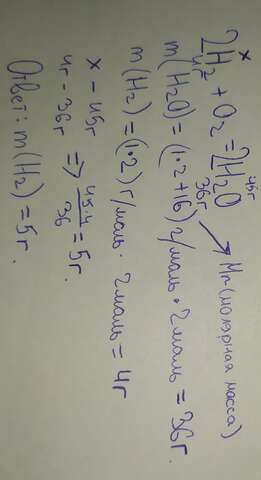 x 45г
2H₂ + O₂ = 2H₂O
4г 36г → Mr (молярная масса)
m(H₂O) = (1·2+16) г/моль · 2моль = 36г.
m(H₂) = (1·2) г/моль · 2моль = 4г
x – 45г
4г – 36г ⇒ 45·4/36 = 5г.
Ответ: m(H₂) = 5г.